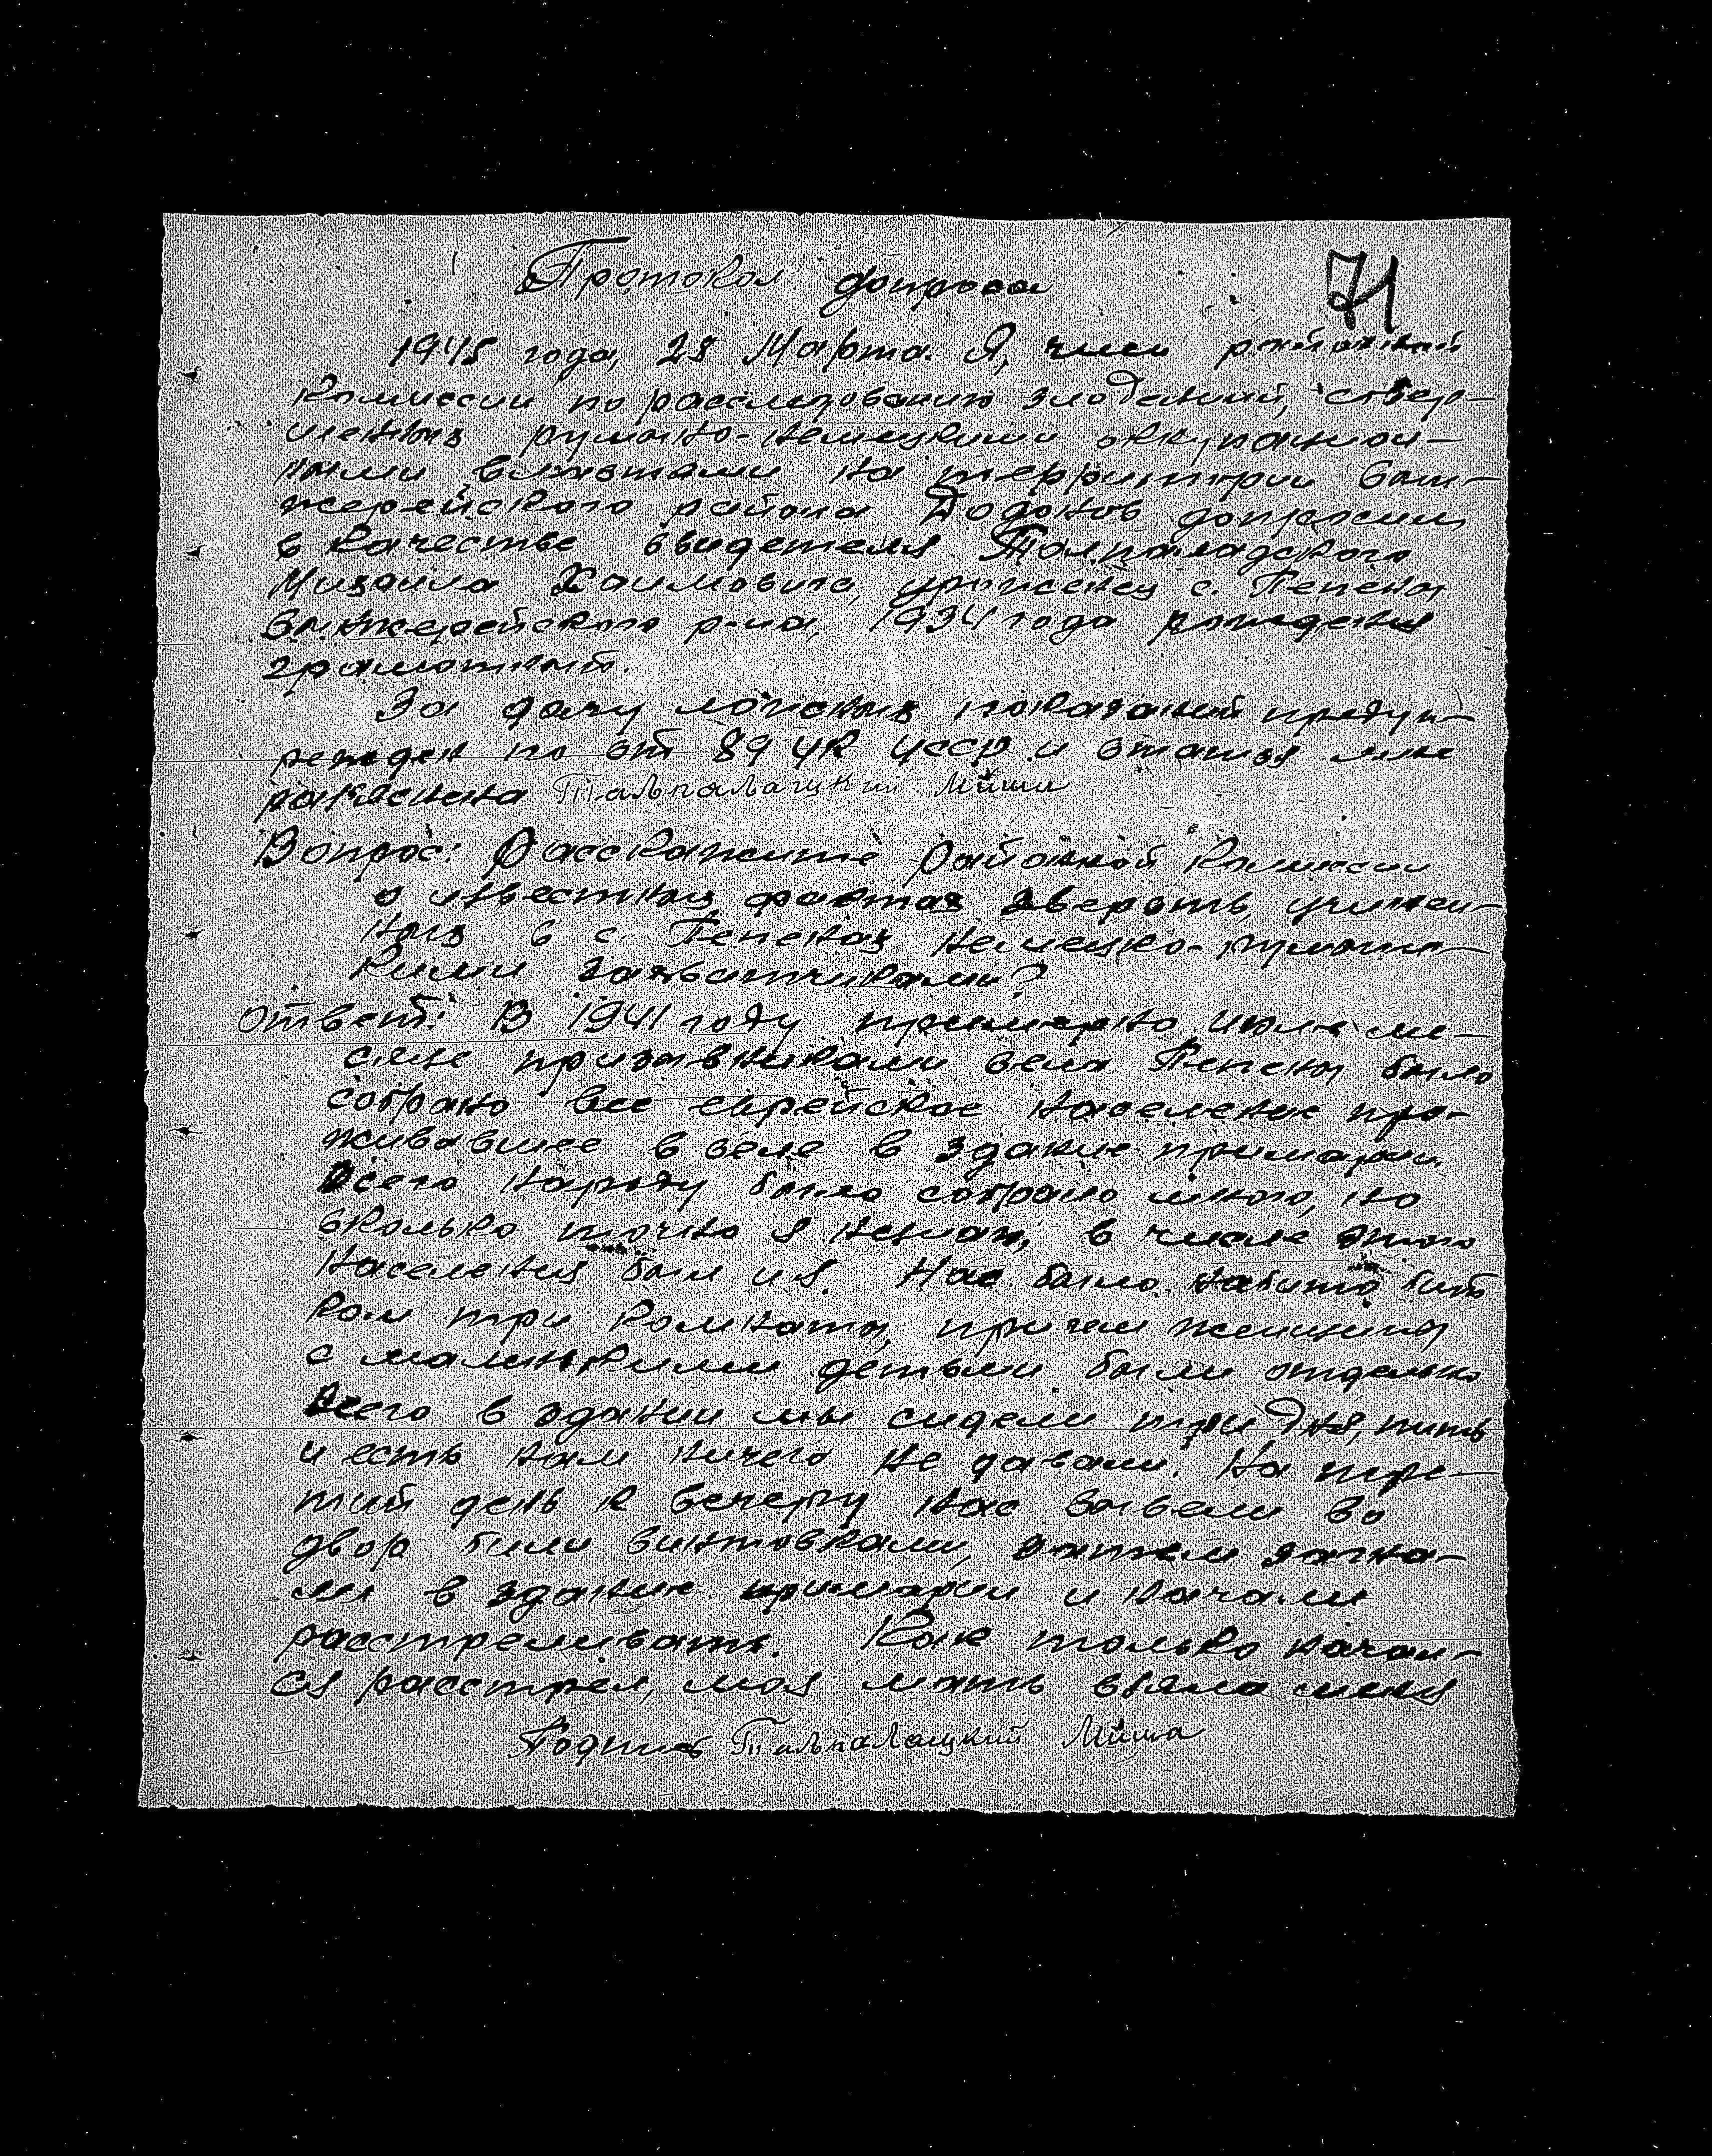 Протокол допроса
71
1945 года, 28 Марта. Я, член районной
Комиссии по расследованию злодеяний, совер-
шенных румыно-немецкими оккупацион-
ными властями на территории Сын-
жерейского района Додонов допросил
в качестве свидетеля
Михаила Хаимовича, уроженец с. Пепены
Сынжерейского р-на, 1934 года рождения
грамотный.
За дачу ложных показаний предуп-
режден по ст 89 УК УССР и статья мне
раз'яснена Тальпалацкий Миша
Вопрос: Расскажите районной Комиссии
о известных фактах зверств, учинен-
ных в с. Пепенах немецко-румынс-
кими захватчиками?
Ответ: В 1941 году примерно июле ме-
сяце села Пепены было
собрано все еврейское население про-
живавшее в селе в здание примарии
Всего народу было собрано много, но
сколько точно я незнаю, в числе этого
населения был и я. Нас было набито бит
ком три комнаты, причем женщины
с малинкими детьми были отдельно
Всего в здании мы сидели три дня, пить
и есть нам ничего не давали. На тре-
тий день к вечеру нас вывели во
двор били винтовками, затем загна-
ли в здание примарии и начали
расстреливать. Как только начал-
ся расстрел, моя мать взяла меня
Подпись Тальпалацкий Миша